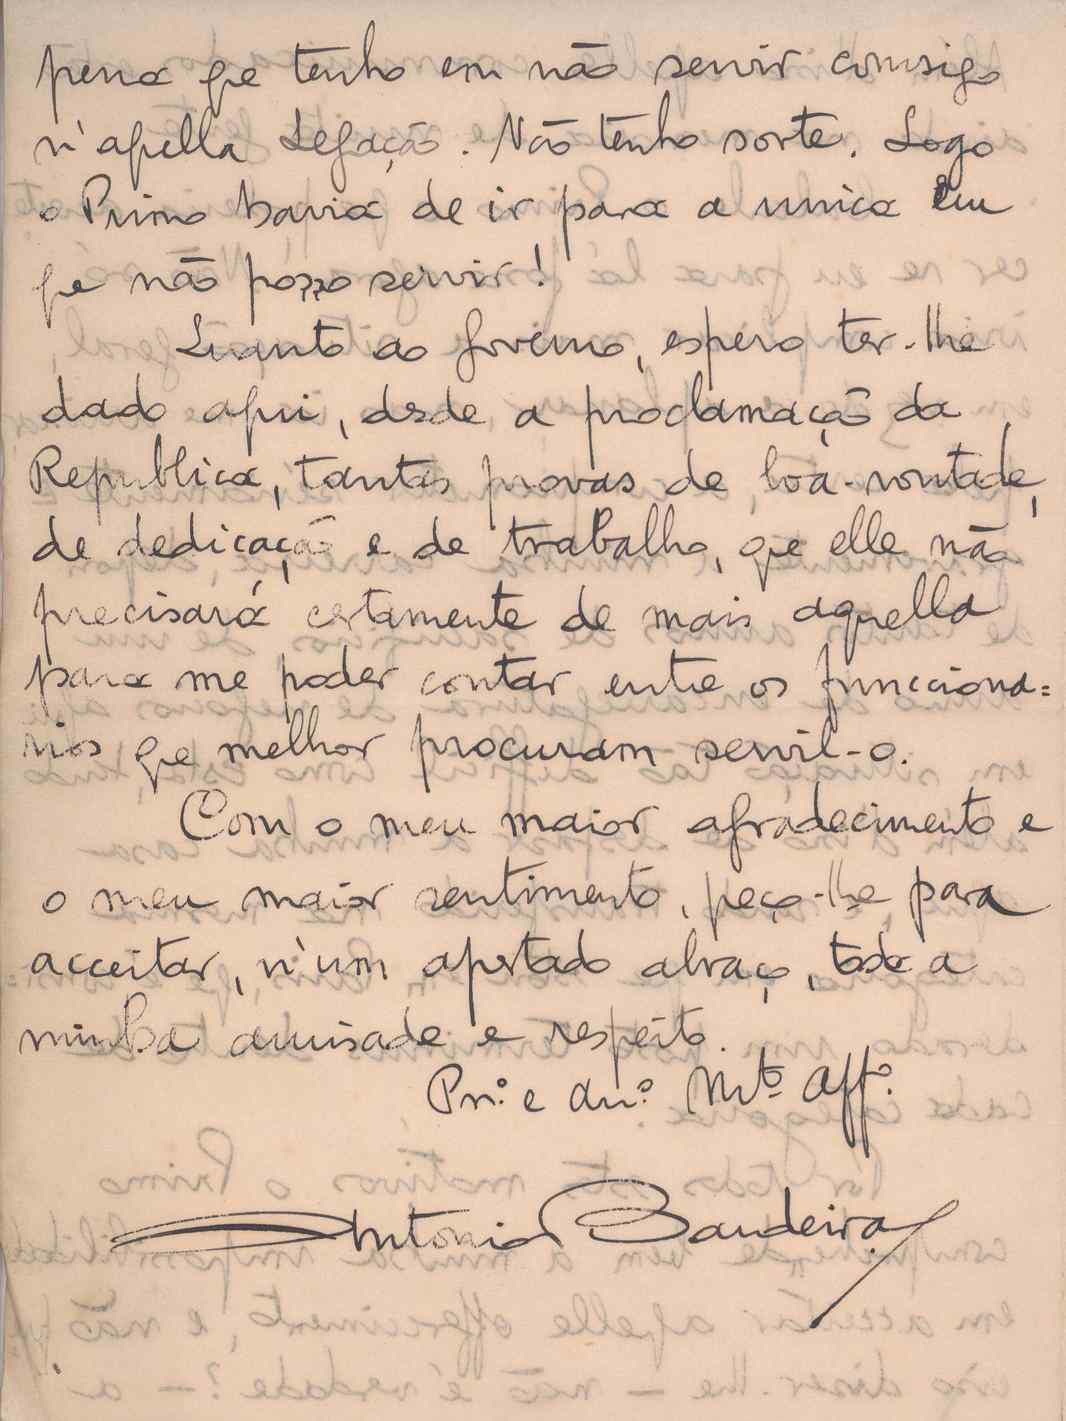 pena qe tenho em não servir comsigo
n'aqella Legação. Não tenho sorte. Logo
o Primo havia de ir para a unica em
qe não posso servir!
Quanto ao governo, espero ter-lhe
dado aqui, desde a proclamação da
Republica, tantas provas de boa-vontade,
de dedicação e de trabalho, qe elle não
precisará certamente de mais aquella
para me poder contar entre os funcciona=
rios qe melhor procuram servil-o.
Com o meu maior agradecimento e
o meu maior sentimento, peço-lhe para
acceitar, n'um apertado abraço, toda a
minha amisade e respeito.
Pr.º e Am.º Mtº Affº.
Antonio Bandeira